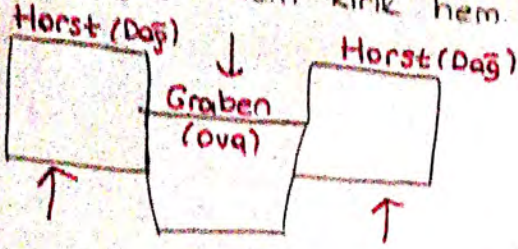 kırık hem
Horst (Dağ)
Horst (Dağ)
Graben
(Ova)